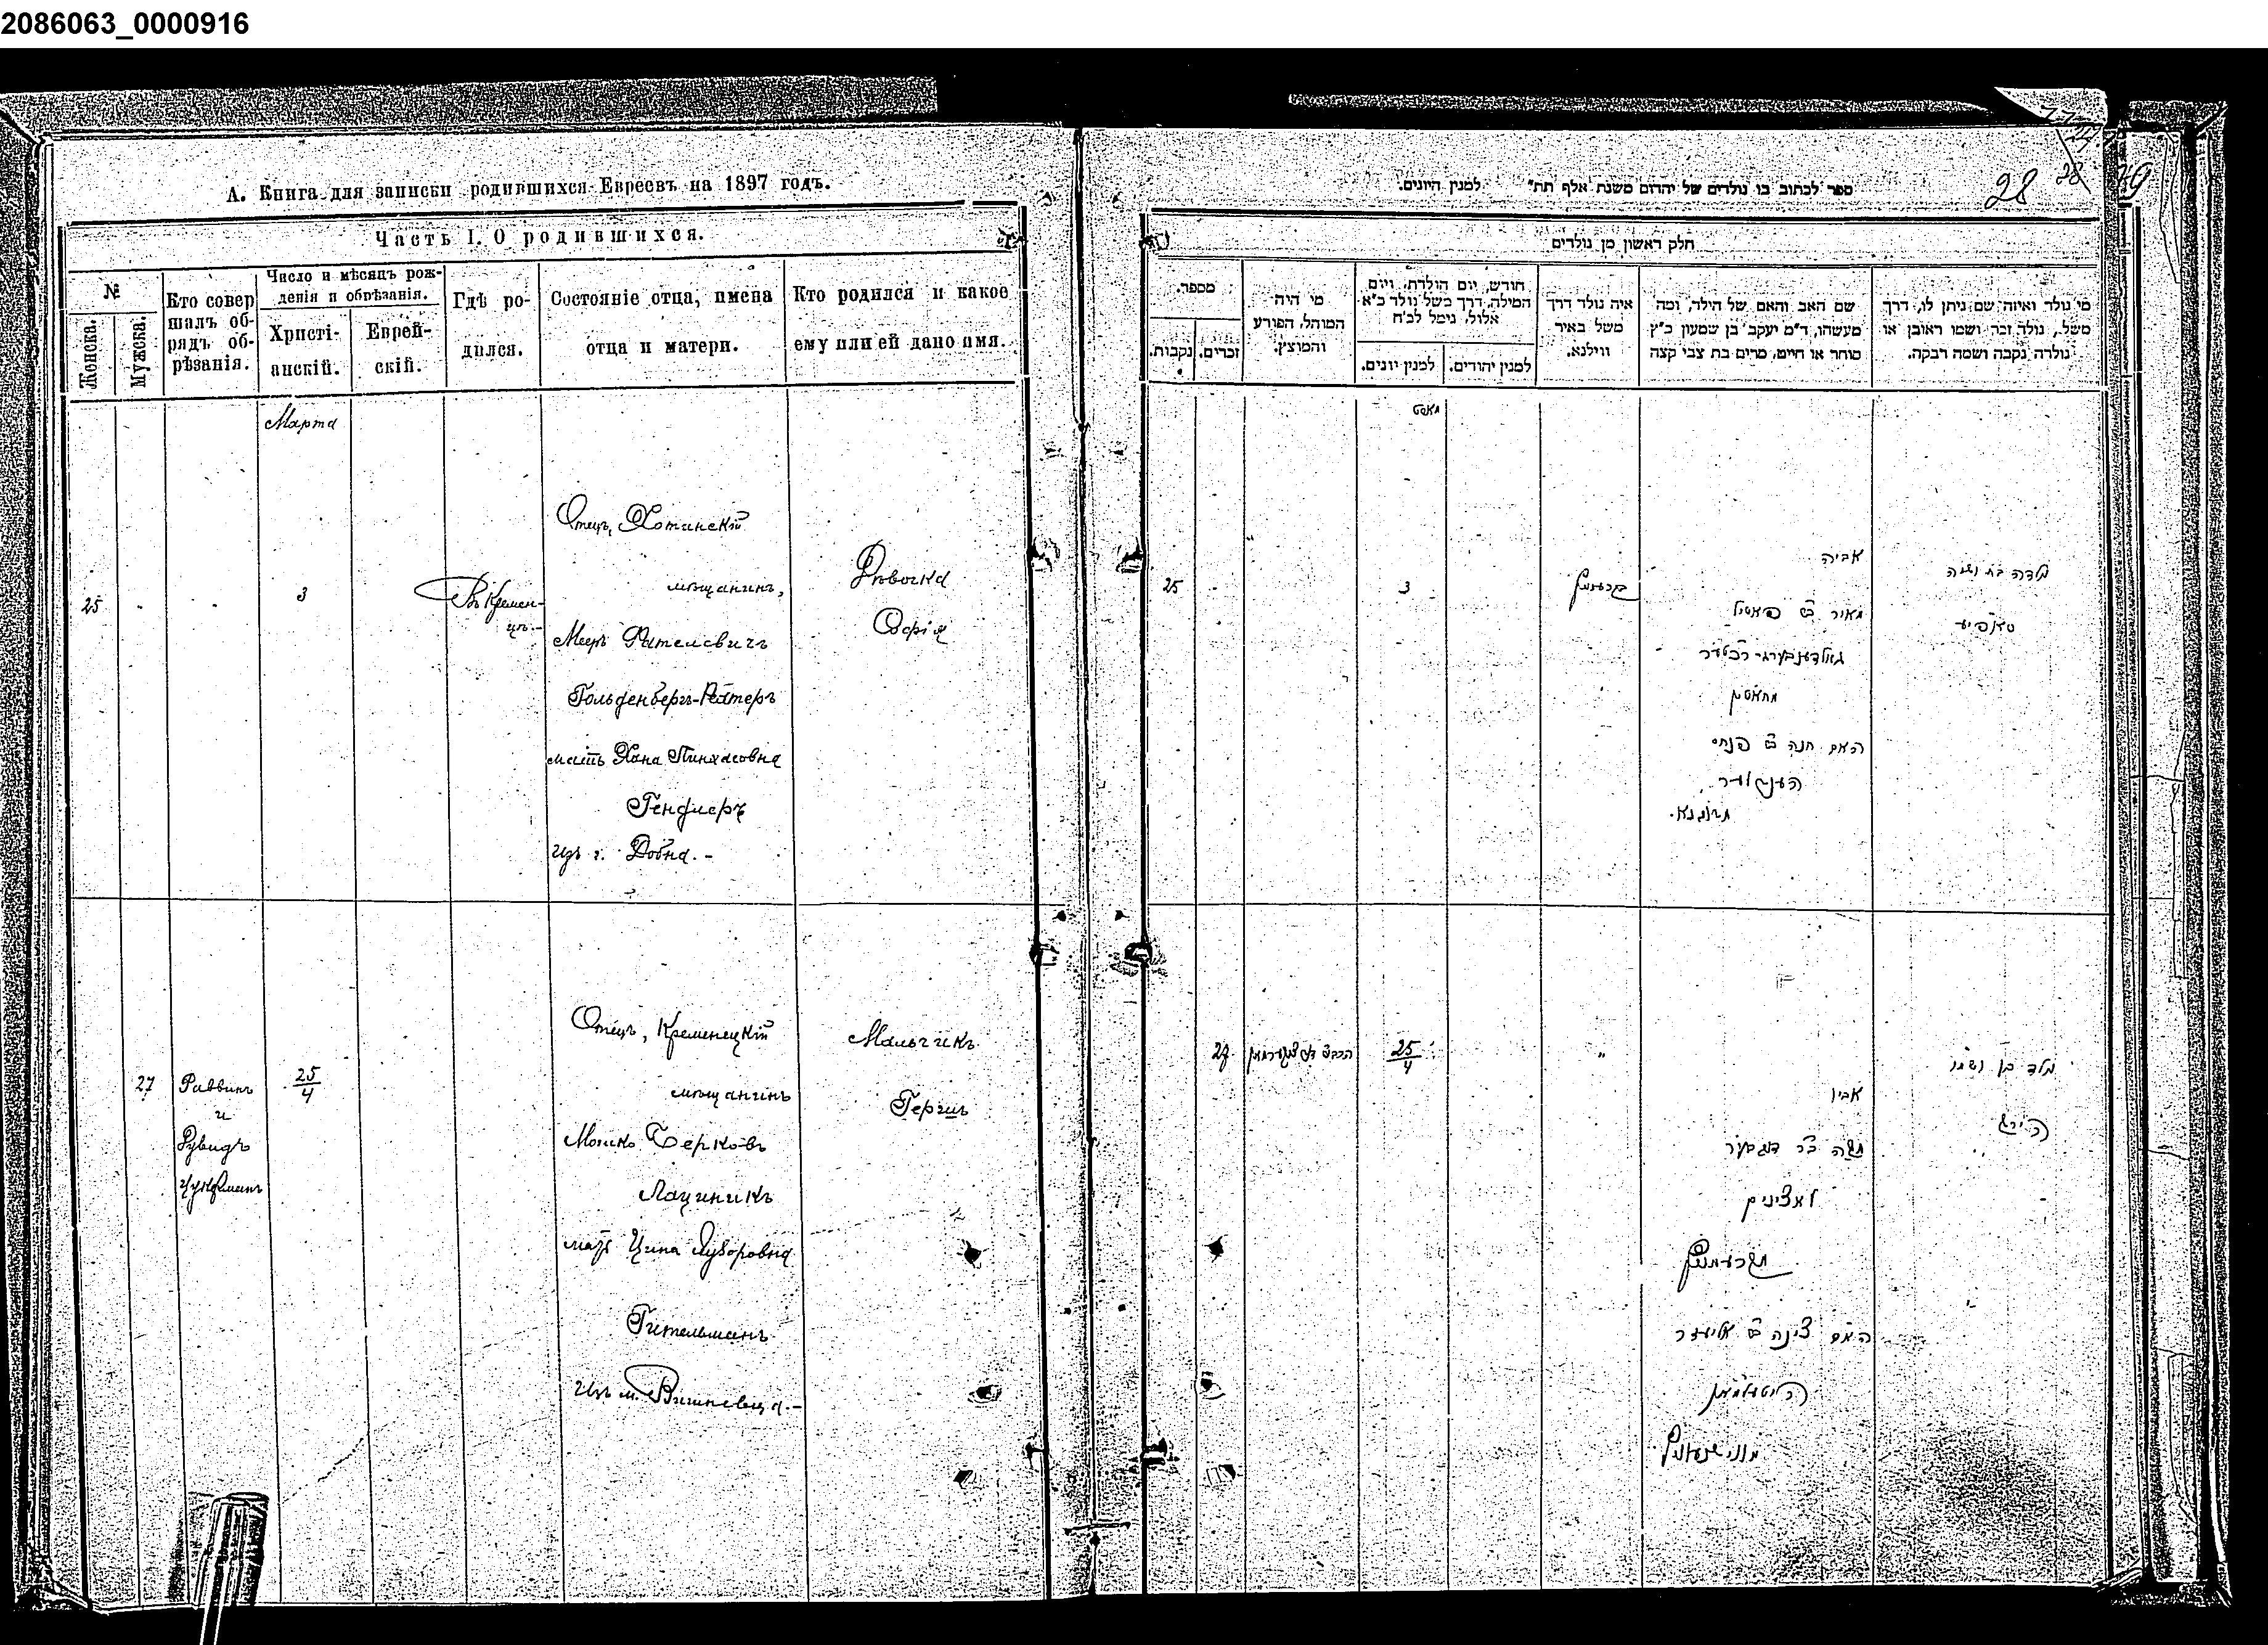 2086063_0000916
А. Книга для записки родившихся Евреевъ на 1897 годъ.
Часть I. О родившихся.
№
Женска.
Мужска.
Кто совер
шалъ об-
рядъ об-
рѣзанія.
Число и мѣсяцъ рож-
денія и обрѣзанія.
Христі-
анскій.
Еврей-
скій.
Гдѣ ро-
дился.
Состояніе отца, имена
отца и матери.
Кто родился и какое
ему или ей дано имя.
Марта
25
3
Въ Кремен-
цѣ.-
Отецъ, Хотинскій
мѣщанинъ,
Мееръ Фателевичъ
Гольденбергъ-Рейтеръ
мать Хана Пинхасовна
Генфлеръ
изъ г. Дубна.-
Дѣвочка
Софія
27
Раввинъ
и
Рувидъ
Цукерманъ
25
4
Отецъ, Кременецкій
мѣщанинъ
Мошко Берковъ
Лациникъ
мать Цина Лузоровна
Гительманъ
изъ м. Вишневца.-
Мальчикъ
Гершъ
28
28
29
ספר לכתוב בו נולדים של יהודים משנת אלף תת״ למנין היונים.
חלק ראשון מן נולדים
מספר.
נקבות.
זכרים.
מי היה
המוהל, הפורע
והמוצץ.
חודש, יום הולדת, ויום
המילה, דרך משל נולד כ״א
אלול, נימל לכ״ח
למנין יונים.
למנין יהודים.
איה נולד דרך
משל באיר
ווילנא.
שם האב והאם של הילד, ומה
מעשהו, ד״מ יעקב בן שמעון כ״ץ
סוחר או חייט, מרים בת צבי קצה
מי נולד ואיזה שם ניתן לו, דרך
משל, נולד זכר ושמו ראובן או
נולדה נקבה ושמה רבקה.
מארט
25
3
בקרעמניץ
אביה
מאיר ב״ר פאטיל
גאלדענבערג-רייטער
מחאטין
האם חנה ב״פ פנחס
הענפלער
מדובנא.
נולדה בת ושמה
סאפיע
27
25
4
"
אביו
משה ב״ר דובער
לאציניק
מקרעמניץ
האם צינה ב״ר אליעזר
היטעלמאן
מווישניוויץ
נולד בן ושמו
הירש